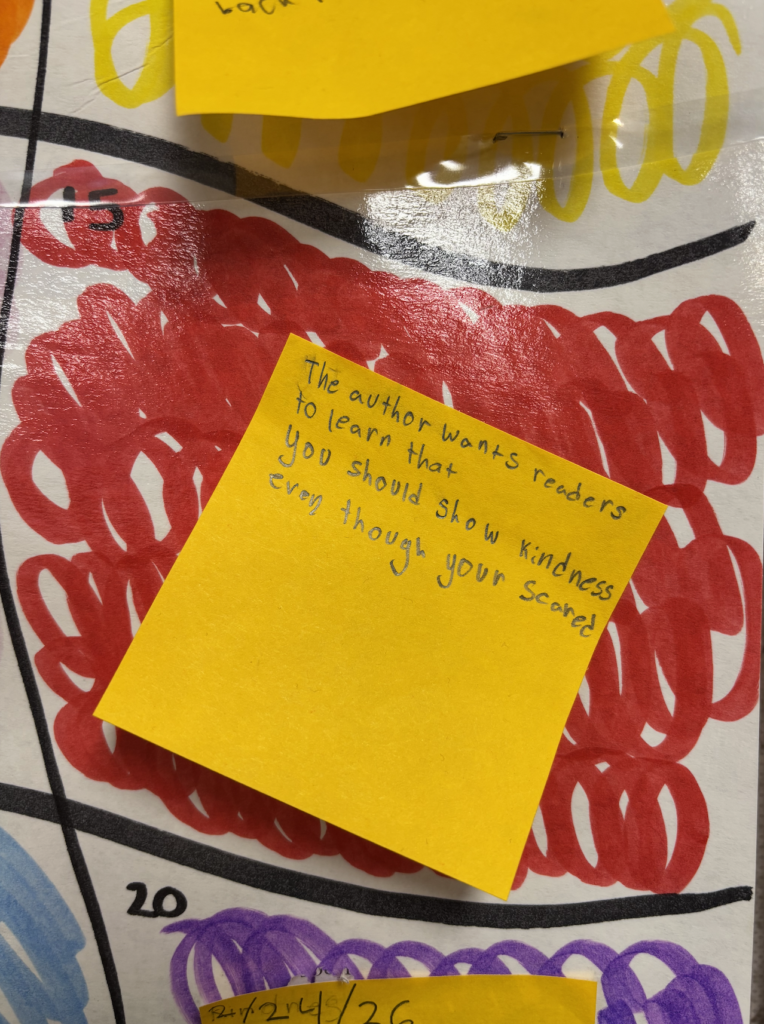 back
15
The author wants readers
to learn that
you should show kindness
even though your scared
20
2/24/26